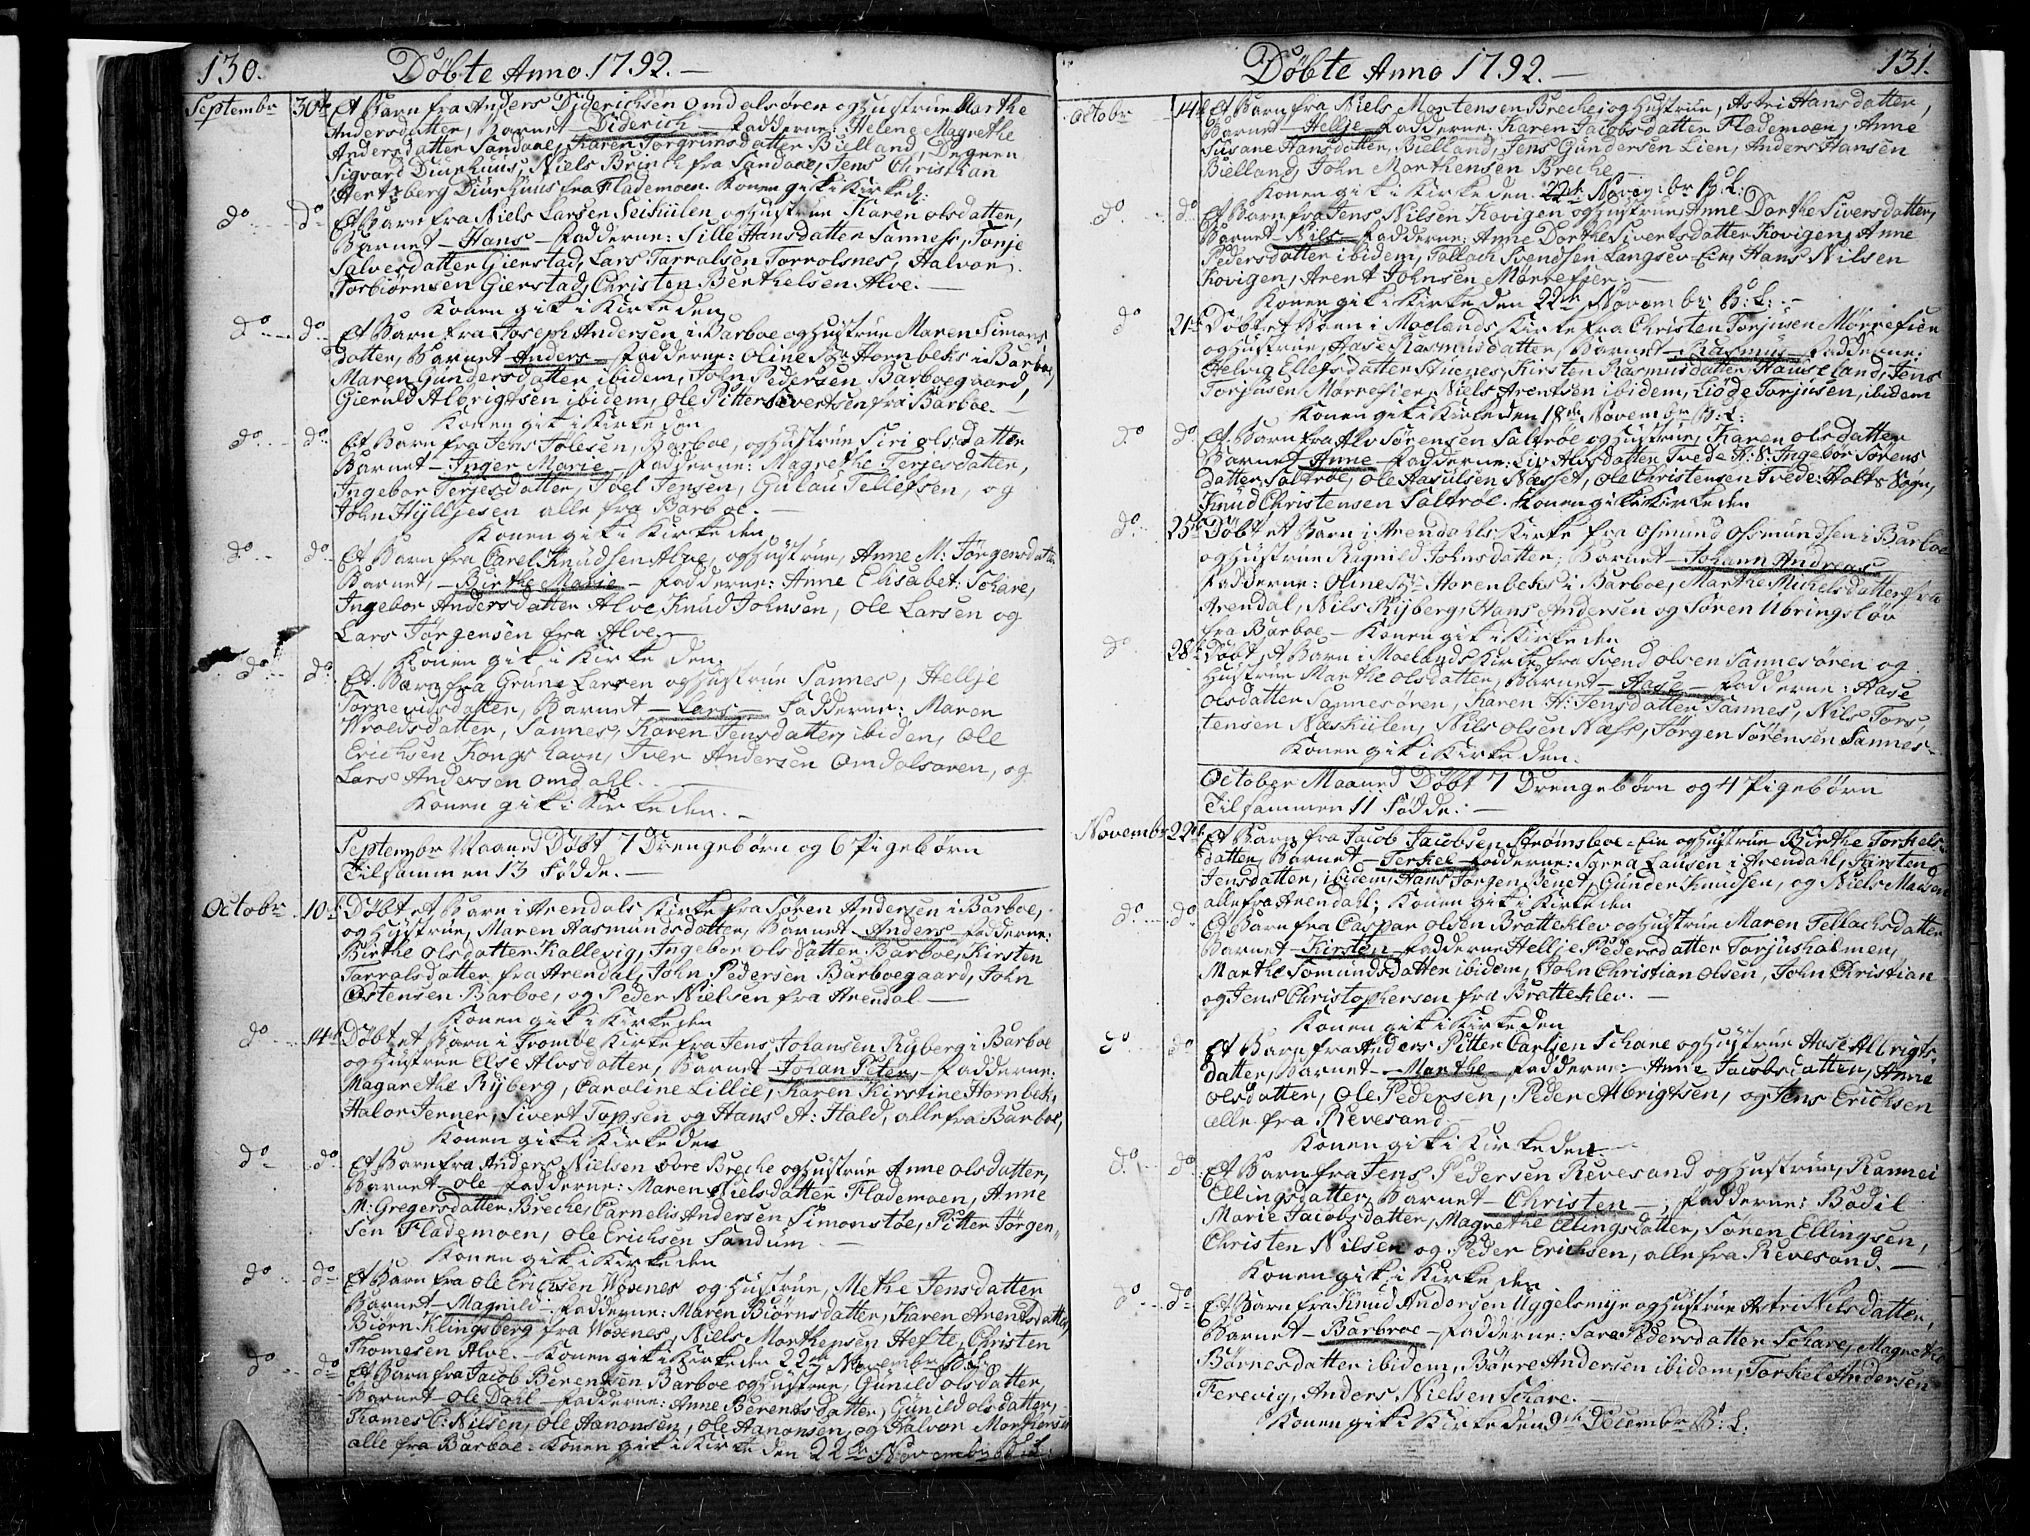 130.
Döbte Anno 1792.—
Septembr 30te Et Barn fra Anders Diderichsen Omdalsören og Hustrue Marthe
Andersdatter, Barnet — Diderich — Fadderne: Helene Magrethe
Andersdatter Sandaae, Karen Torgrimsdatter Bielland, Degnen
Sigvard Diurhuus, Niels Brinch fra Sandaae, Jens Christian
Hertzberg Diurhuus fra Flademoen. Konen gik i Kirke d:
do do Et Barn fra Niels Larsen Seikiilen og Hustrue Karen Olsdatter,
Barnet — Hans — Fadderne: Sille Hansdatter Sanness, Tonje
Salvesdatter Gierstad, Lars Tarralsen Torrolsnes, Halvor
Torbiörnsen Gierstad, Christen Berthelsen Alve. —
Konen gik i Kirke den
do do Et Barn fra Joseph Andersen i Barboe og Hustrue Maren Simons
datter, Barnet — Anders — Fadderne: Oline Sr Hornbeks i Barboe,
Maren Gundersdatter ibidem, John Pedersen Barboegaard,
Gieruld Albrigtsen ibidem, Ole Pitter Sivertsen fra Barboe. —
Konen gik i Kirke den
do do Et Barn fra Jens Jolesen, Barboe, og Hustrue Siri Olsdatter
Barnet — Inger Marie — Fadderne: Magrethe Terjesdatter,
Ingebor Terjesdatter, Joel Jensen, Gulau Tellefsen, og
John Hylljesen alle fra Barboe. —
Konen gik i Kirke den
do do Et Barn fra Carel Knudsen Alve, og Hustrue, Anne M: Jörgensdatter
Barnet, — Birthe Marie — Fadderne: Anne Elisabet Schare,
Ingebor Andersdatter Alve Knud Johnsen, Ole Larsen og
Lars Jörgensen fra Alve. —
Konen gik i Kirke den
do do Et Barn fra Grune Larsen og Hustrue Sannes, Hellje
Tarnevidsdatter, Barnet — Lars — Fadderne: Maren
Wroldsdatter, Sannes, Karen Jensdatter, ibiden, Ole
Erichsen Kongshavn, Iver Andersen Omdalsøren, og
Lars Andersen Omdahl. —
Konen gik i Kirke den. —
Septembr Maaned Döbt 7 Drengebörn og 6 Pigebörn
Tilsammen 13 Födde. —
Octobr 10de Döbt et Barn i Arendals Kirke fra Sören Andersen i Barboe,
og Hustrue, Maren Aasmundsdatter, Barnet — Anders — Fadderne:
Birthe Olsdatter Kallevig, Ingebor Olsdatter Barboe, Kirsten
Tarralsdatter, fra Arendal, John Pedersen Barboegaard, John
Östensen Barboe, og Peder Nielsen fra Arendal —
Konen gik i Kirke den
do 14de Döbt et Barn i Trombe Kirke fra Jens Johansen Ryberg i Barboe
og Hustrue Else Alvsdatter, Barnet — Johan Peter, — Fadderne:
Magarethe Ryberg, Caroline Lillie, Karen Kirstine Hornbek,
Halor Jerner, Sivert Topsen og Hans A: Hald, alle fra Barboe,
Konen gik i Kirke den
do do Et Barn fra Anders Nielsen Övre Breche og Hustrue Anne Olsdatter,
Barnet — Ole — Fadderne: Maren Nielsdatter Flademoen, Anne
M: Gregersdatter Breche, Carnelis Andersen Simonstøe, Pitter Jörgen,,
sen Flademoen, Ole Erichsen Sandum. —
Konen gik i Kirke den
do do Et Barn fra Ole Ericksen Woxnes og Hustrue, Methe Jensdatter
Barnet — Magnild — Fadderne: Maren Biörnsdatter, Karen Arentsdatter,
Biörn Klingsberg fra Woxenes, Niels Morthensen Hefte, Christen
Thomesen Alve. — Konen gik i Kirke den 22de Novembr B: L:
do do Et Barn fra Jacob Berentsen Barboe og Hustrue, Gunild Olsdatter,
Barnet — Ole Dail — Fadderne: Anne Berentsdatter, Gunild Olsdatter,
Thomes C: Nilsen, Ole Aanonsen, Ole Aanonsen, og Halvor Morthensen
alle fra Barboe. Konen gik i Kirke den 22de Novembr B: L:
131.
Döbte Anno 1792. —
Octobr 14de Et Barn fra Niels Mortensen Breche, og Hustrue, Astri Hansdatter,
Barnet — Hellje — Fadderne: Karen Jacobsdatter Flademoen, Anne
Susane Hansdatter, Bielland, Jens Gundersen Lien, Anders Hansen
Bielland, John Morthensen Breche —
Konen gik i Kirke den 22de Novembr B: L:
do do Et Barn fra Jens Nilsen Kovigen og Hustrue Anne Dorthe Siversdatter,
Barnet — Nils — Fadderne: Anne Dorthe Sivertsdatter Kovigen, Anne
Pedersdatter ibidem, Tallach Svendsen Langsev Eie, Hans Nilsen
Kovigen, Arent Johnsen Mørrefier, —
Konen gik i Kirke den 22de Novembr B: L: —
do 21de Döbt et Barn i Moelands Kirke fra Christen Torjusen Mørrefier
og Hustrue, Aase Rasmusdatter, Barnet — Rasmus — Fadderne:
Helvig Ellefsdatter Stuenes, Kirsten Rasmusdatter Hauseland, Jens
Torjusen Mörrefier, Niels Arentsen ibidem, Lidge Torjusen, ibidem
Konen gik i Kirke den 18de Novembr B: L:
do do Et Barn fra Alv Sörensen Saltröe og Hustrue, Karen Olsdatter
Barnet — Anne — Fadderne: Liv Alvsdatter Tvede H: S: Ingebör Sörens
datter, Saltröe, Ole Aasulsen Næsset, Ole Christensen Tvede: Holts Sogn,
Knud Christensen Saltröe. Konen gik i Kirke den
do 25de Döbt et Barn i Arendahls Kirke fra Osmund Osmundsen i Barboe
og Hustrue Ragnild Johnsdatter, Barnet — Johann Andreas
Fadderne: Oline Sr Horenbeks i Barboe, Marthe Michelsdatter fra
Arendal, Nils Ryberg, Hans Andersen og Sören Ubringslöv
fra Barboe — Konen gik i Kirke den
do 28de Döbt et Barn i Moelands Kirke fra Svend Olsen Sannesören og
Hustrue Marthe Olsdatter, Barnet — Aase — Fadderne: Aase
Olsdatter Sannesören, Karen H: Jensdatter Sannes, Nils Tors,
tensen Næskiilen, Nils Olsen Næss, Jörgen Sörensen Sannes —
Konen gik i Kirke den.
October Maaned Döbt 7 Drengebörn og 4 Pigebörn
Tilsammen 11 Födde. —
Novembr 22de Et Barn fra Jacob Jacobsen Strömsboe-Eie og Hustrue Birthe Torkels
datter, Barnet — Terkel — Fadderne: Lausen i Arendahl, Kirsten
Jensdatter, ibidem, Hans Jörgen Benet, Gunder Knudsen, og Niels Madsen
alle fra Arendahl; Konen gik i Kirke den
do do Et Barn fra Caspar Olsen Bratteklev og Hustrue Maren Tellachsdatter
Barnet — Kirsten — Fadderne Hellje Pedersdatter Torjusholmen,
Marthe Somundsdatter ibidem, John Christian Olsen, John Christian
og Jens Christophersen fra Bratteklev. —
Konen gik i Kirke den
do do Et Barn fra Anders Pitter Carlsen Schare og Hustrue Aase Albrigts,
datter, Barnet — Marthe — Fadderne: — Anne Jacobsdatter, Anne
Olsdatter, Ole Pedersen, Peder Albrigtsen, og Jens Erichsen
alle fra Revesand —
Konen gik i Kirke den —
do do Et Barn fra Jens Pedersen Revesand og Hustrue, Rannei
Ellingsdatter, Barnet — Christen —, Fadderne: Bodil
Marie Jacobsdatter, Magrethe Ellingsdatter, Sören Ellingsen,
Christen Nilsen og Peder Erichsen, alle fra Revesand. —
Konen gik i Kirke den
do do Et Barn fra Knud Andersen Uggelsmyr og Hustrue Astri Nilsdatter,
Barnet — Barbroe — Fadderne: Sara Pedersdatter Schare, Magrethe
Börnesdatter ibidem, Börre Andersen ibidem, Torkel Andersen
Ferevig, Anders Nielsen Schare.
Konen gik i Kirke den 9de Decembr B: L: